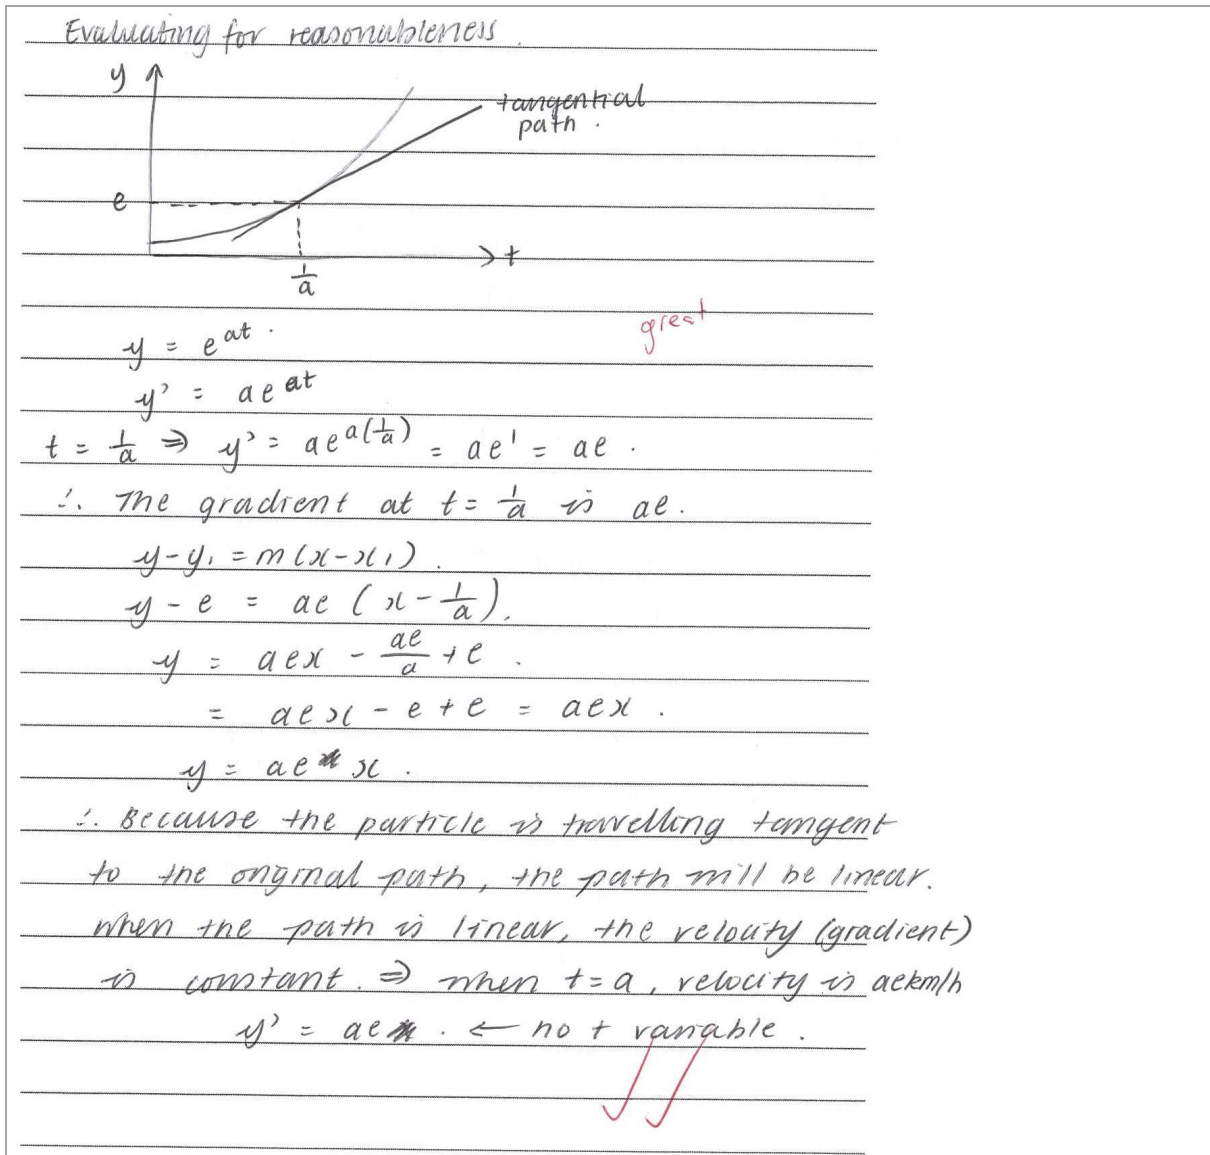 Evaluating for reasonableness.
y
tangential
path.
e
t
1/a
great
y = e^{at}.
y' = ae^{at}
t = 1/a ⇒ y' = ae^{a(1/a)} = ae^1 = ae.
∴ The gradient at t = 1/a is ae.
y-y₁ = m(x-x₁).
y - e = ae (x - 1/a).
y = aex - ae/a + e.
= aex - e + e = aex.
y = ae x.
∴ Because the particle is travelling tangent
to the original path, the path will be linear.
when the path is linear, the velocity (gradient)
is constant. ⇒ when t=a, velocity is aekm/h
y' = ae. ← no t variable.